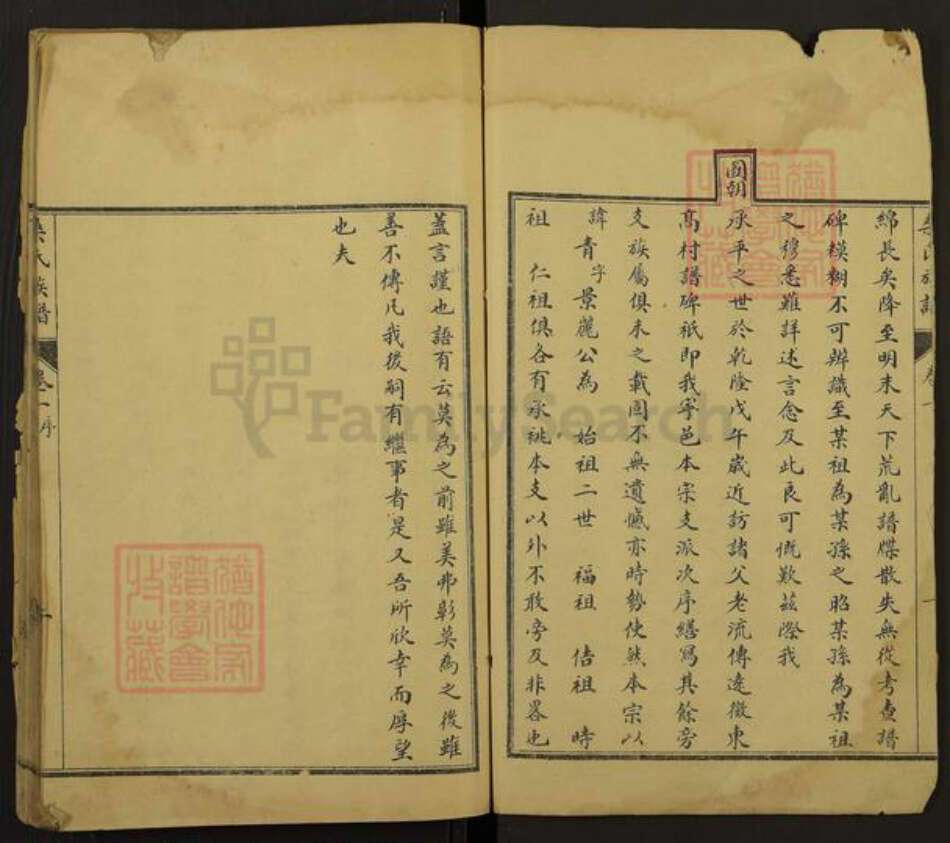 綿長矣降至明末天下荒亂譜牒散失無從考查譜
碑模糊不可辨識至某祖為某孫之昭某孫為某祖
之穆悉難詳述言念及此良可慨歎茲際我
國朝
承平之世於乾隆戊午歲近訪諸父老流傳遠徵東
高村譜碑祇即我寧邑本宗支派次序繕寫其餘旁
支族屬俱未之載固不無遺憾亦時勢使然本宗以
諱青字景麗公為 始祖二世 福祖 佶祖 時
祖 仁祖俱各有承祧本支以外不敢旁及非畧也
蓋言謹也語有云莫為之前雖美弗彰莫為之後雖
善不傳凡我後嗣有繼事者是又吾所欣幸而厚望
也夫
氏族譜 卷一序
FamilySearch